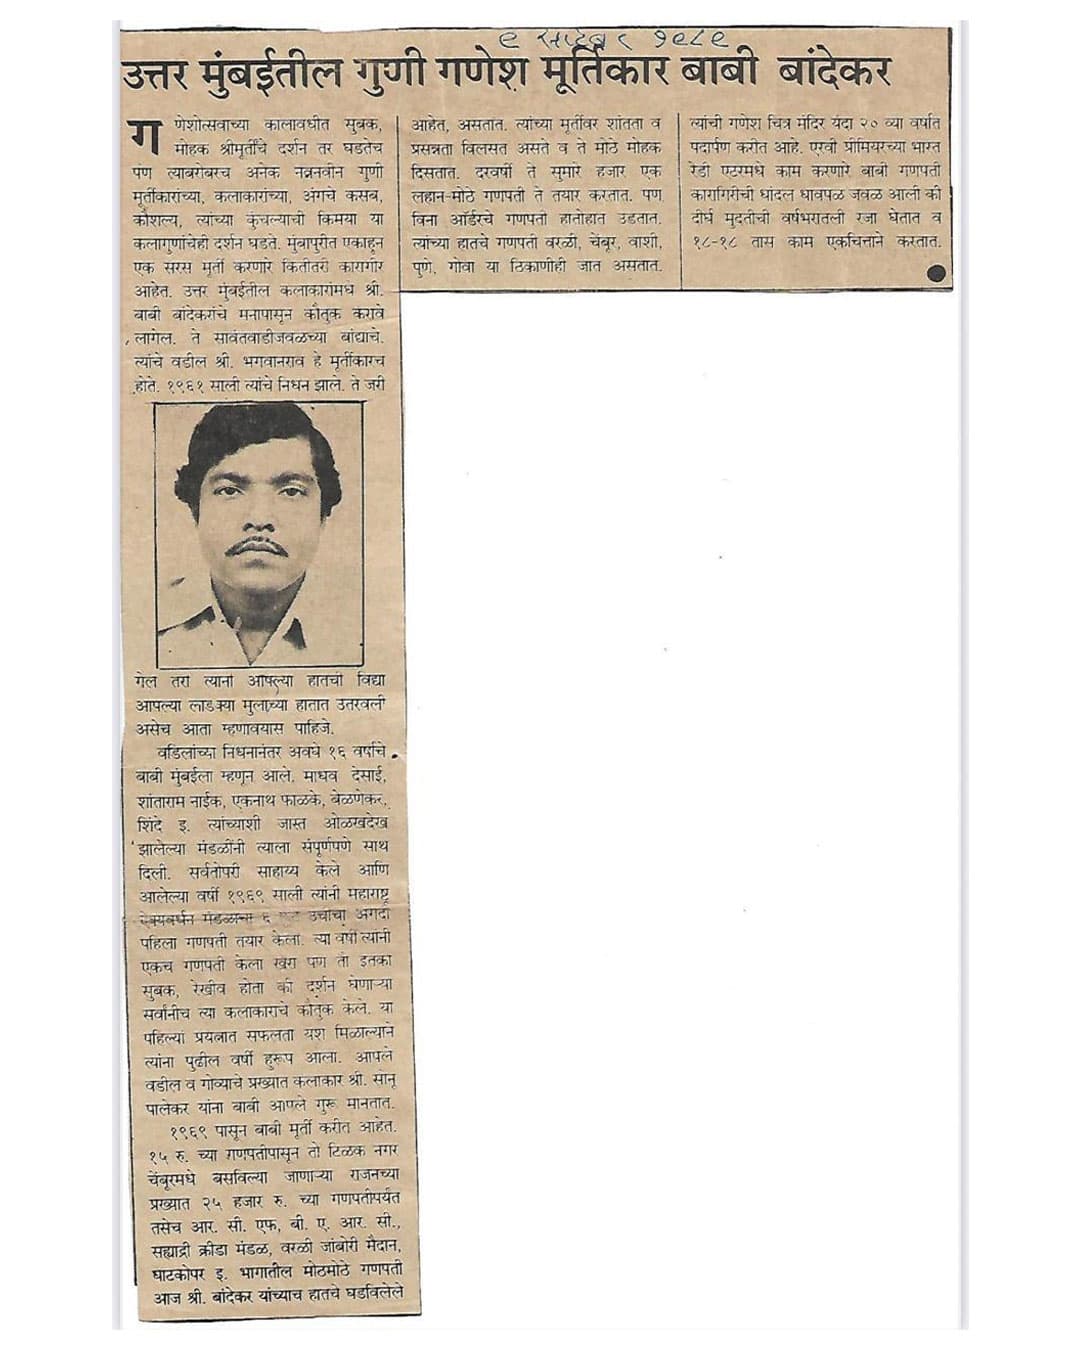 ९ सप्टेंबर १९८९
उत्तर मुंबईतील गुणी गणेश मूर्तिकार बाबी बांदेकर
गणेशोत्सवाच्या कालावधीत सुबक,
मोहक श्रीमूर्तींचे दर्शन तर घडतेच
पण त्याबरोबरच अनेक नवनवीन गुणी
मूर्तीकारांच्या, कलाकारांच्या, अंगचे कसब,
कौशल्य, त्यांच्या कुंचल्याची किमया या
कलागुणांचेही दर्शन घडते. मुंबापुरीत एकाहून
एक सरस मूर्ती करणारे कितीतरी कारागीर
आहेत. उत्तर मुंबईतील कलाकारांमधे श्री.
बाबी बांदेकरांचे मनापासून कौतुक करावे
लागेल. ते सावंतवाडीजवळच्या बांद्याचे.
त्यांचे वडील श्री. भगवानराव हे मूर्तीकारच
होते. १९६१ साली त्यांचे निधन झाले. ते जरी
गेले तरी त्यांनी आपल्या हातची विद्या
आपल्या लाडक्या मुलाच्या हातात उतरवली
असेच आता म्हणावयास पाहिजे.
वडिलांच्या निधनानंतर अवघे १६ वर्षाचे
बाबी मुंबईला म्हणून आले. माधव देसाई,
शांताराम नाईक, एकनाथ फाळके, बेळणेकर,
शिंदे इ. त्यांच्याशी जास्त ओळखदेख
झालेल्या मंडळींनी त्याला संपूर्णपणे साथ
दिली. सर्वतोपरी साहाय्य केले आणि
आलेल्या वर्षी १९६९ साली त्यांनी महाराष्ट्र
ऐक्यवर्धन मंडळाचा ६ फूट उंचीचा अगदी
पहिला गणपती तयार केला. त्या वर्षी त्यांनी
एकच गणपती केला खरा पण तो इतका
सुबक, रेखीव होता की दर्शन घेणाऱ्या
सर्वांनीच त्या कलाकाराचे कौतुक केले. या
पहिल्या प्रयत्नात सफलता यश मिळाल्याने
त्यांना पुढील वर्षी हुरूप आला. आपले
वडील व गोव्याचे प्रख्यात कलाकार श्री. सोनू
पालेकर यांना बाबी आपले गुरू मानतात.
१९६९ पासून बाबी मूर्ती करीत आहेत.
१५ रु. च्या गणपतीपासून तो टिळक नगर
चेंबूरमधे बसविल्या जाणाऱ्या राजनच्या
प्रख्यात २५ हजार रु. च्या गणपतीपर्यंत
तसेच आर. सी. एफ, बी. ए. आर. सी.,
सह्याद्री क्रीडा मंडळ, वरळी जांबोरी मैदान,
घाटकोपर इ. भागातील मोठमोठे गणपती
आज श्री. बांदेकर यांच्याच हातचे घडविलेले
आहेत, असतात. त्यांच्या मूर्तीवर शांतता व
प्रसन्नता विलसत असते व ते मोठे मोहक
दिसतात. दरवर्षी ते सुमारे हजार एक
लहान-मोठे गणपती ते तयार करतात. पण
विना ऑर्डरचे गणपती हातोहात उडतात.
त्यांच्या हातचे गणपती वरळी, चेंबूर, वाशी,
पुणे, गोवा या ठिकाणीही जात असतात.
त्यांची गणेश चित्र मंदिर यंदा २० व्या वर्षात
पदार्पण करीत आहे. एरवी प्रीमियरच्या भारत
रेडी एटरमधे काम करणारे बाबी गणपती
कारागिरीची धांदल धावपळ जवळ आली की
दीर्घ मुदतीची वर्षभरातली रजा घेतात व
१८-१८ तास काम एकचित्ताने करतात.